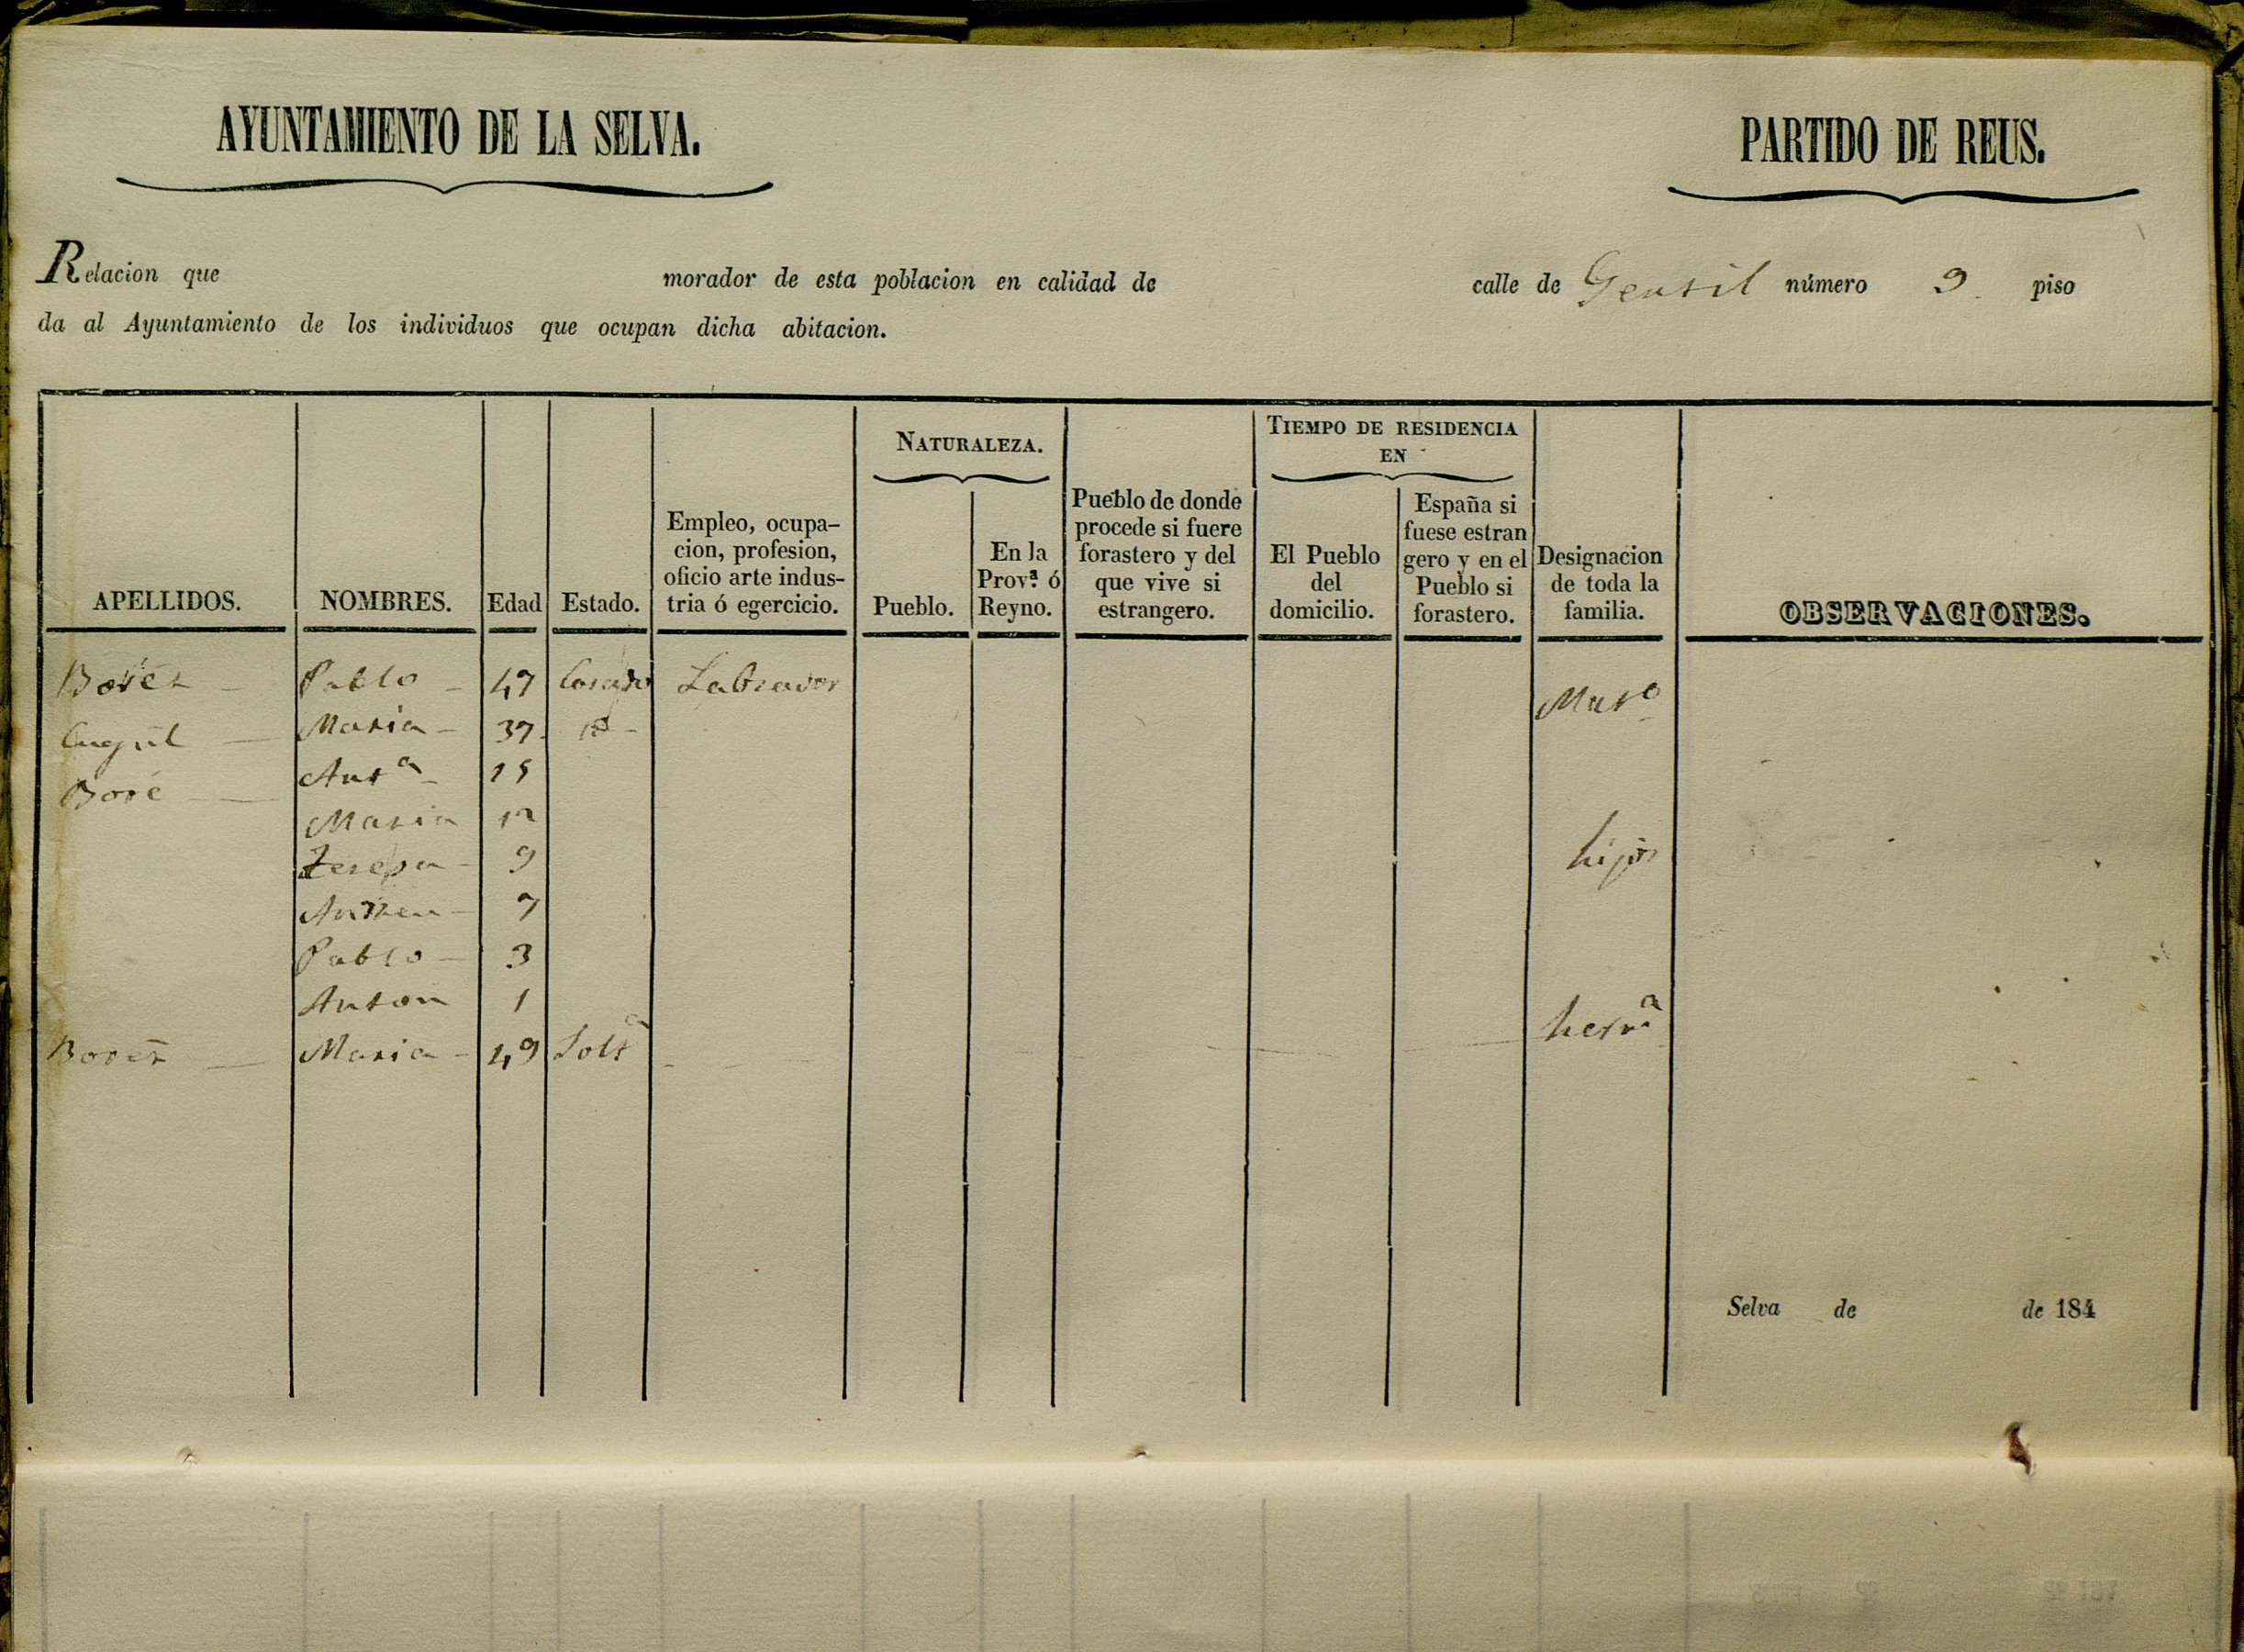 AYUNTAMIENTO DE LA SELVA.
PARTIDO DE REUS.
Relacion que morador de esta poblacion en calidad de calle de Gensil número 9 piso
da al Ayuntamiento de los individuos que ocupan dicha abitacion.
APELLIDOS.
NOMBRES.
Edad
Estado.
Empleo, ocupa-
cion, profesion,
oficio arte indus-
tria ó egercicio.
NATURALEZA.
Pueblo.
En la
Prov.ª ó
Reyno.
Pueblo de donde
procede si fuere
forastero y del
que vive si
estrangero.
TIEMPO DE RESIDENCIA
EN
El Pueblo
del
domicilio.
España si
fuese estran
gero y en el
Pueblo si
forastero.
Designacion
de toda la
familia.
OBSERVACIONES.
Pablo 47 Casado Labrador
Maria 37 id
Boré Antª 15
Maria 12
Teresa 9
Andreu 7
Pablo 3
hijos
Anton 1
Maria 49 Soltª herª
Selva de de 184